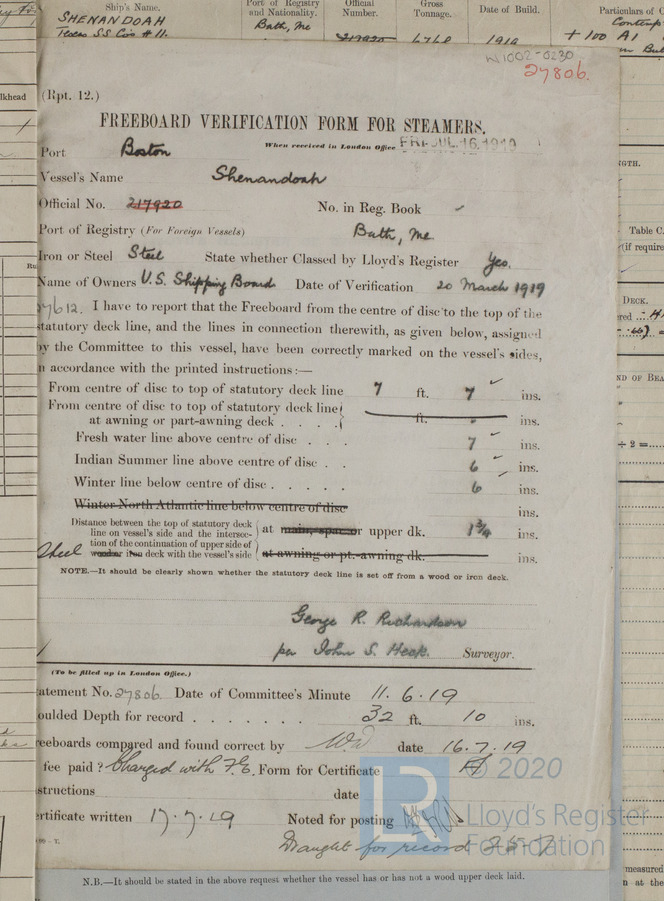 Ship's Name.
Port of Registry
and Nationality.
Official
Number.
Gross
Tonnage.
Date of Build.
Particulars of C
SHENANDOAH
Bath, Me
217920
1919
+ 100 A1
W1002-0230
27806.
(Rpt. 12.)
FREEBOARD VERIFICATION FORM FOR STEAMERS.
When received in London Office FRI. JUL. 16. 1919
Port Boston
Vessel's Name Shenandoah
Official No. 217920 No. in Reg. Book
Port of Registry (For Foreign Vessels) Bath, Me
Iron or Steel Steel State whether Classed by Lloyd's Register Yes.
Name of Owners U.S. Shipping Board Date of Verification 20 March 1919
I have to report that the Freeboard from the centre of disc to the top of the
statutory deck line, and the lines in connection therewith, as given below, assigned
by the Committee to this vessel, have been correctly marked on the vessel's sides,
n accordance with the printed instructions:—
From centre of disc to top of statutory deck line 7 ft. 7 ins.
From centre of disc to top of statutory deck line
at awning or part-awning deck . . . . ft. ins.
Fresh water line above centre of disc . . . 7 ins.
Indian Summer line above centre of disc . . 6 ins.
Winter line below centre of disc . . . . . 6 ins.
Winter North Atlantic line below centre of disc ins.
Distance between the top of statutory deck
line on vessel's side and the intersec-
tion of the continuation of upper side of
Steel wooden iron deck with the vessel's side
at main, spar or upper dk. 1¾ ins.
at awning or pt.-awning dk. ins.
NOTE.—It should be clearly shown whether the statutory deck line is set off from a wood or iron deck.
George R. Richardson
per John S. Heck. Surveyor.
(To be filled up in London Office.)
atement No. 27806 Date of Committee's Minute 11.6.19
oulded Depth for record . . . . . . . 32 ft. 10 ins.
reeboards compared and found correct by date 16.7.19
fee paid? Charged with F.E. Form for Certificate
structions date
ertificate written 17.7.19 Noted for posting
Draught for record 25.7
N.B.—It should be stated in the above request whether the vessel has or has not a wood upper deck laid.
lkhead
NGTH.
Table C.
(if require
DECK.
ND OF BEA
÷ 2 =
measured
n at the
LR
© 2020
Lloyd's Register
Foundation